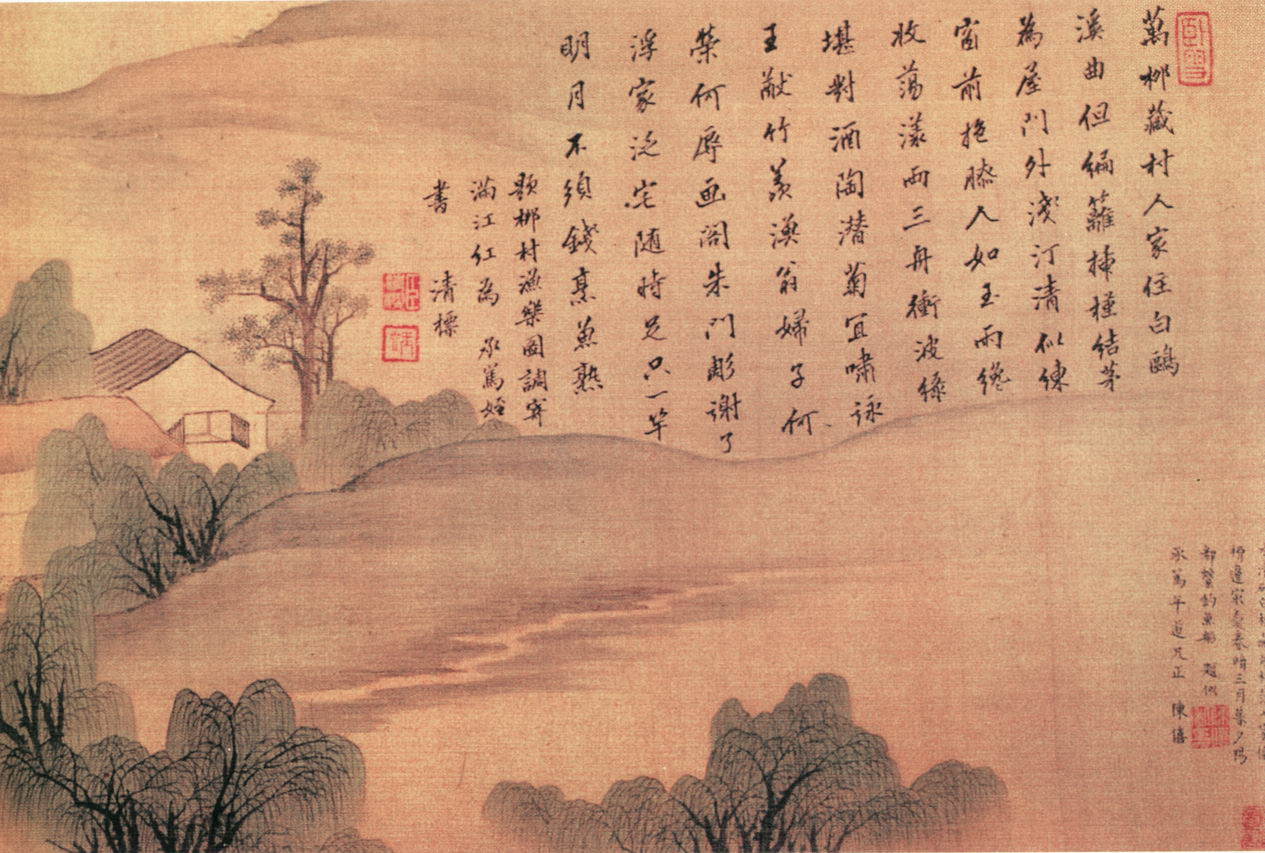 萬柳藏村人家住白鷗
溪曲但編籬揷槿結茅
為屋門外淺汀清似練
窗前抱膝人如玉雨纔
收蕩漾兩三舟衝波綠
堪對酒陶潛菊宜嘯詠
王猷竹羨漁翁婦子何
榮何辱画閣朱門彫謝了
浮家泛宅随時足只一竿
明月不須錢烹魚熟
題柳村漁樂圖調寄
滿江紅為 承篤姪
書 清標
柳邊家春晴三月暮夕陽
都繫釣魚船 題似
承篤年道兄正 陳僖